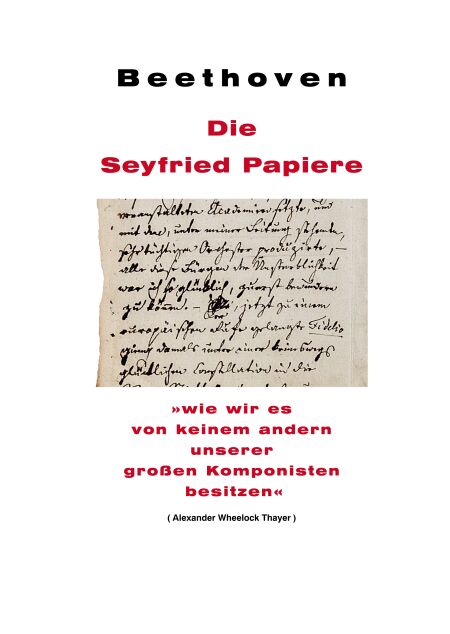 Beethoven
Die
Seyfried Papiere
veranstalteten Academieen setzte, und
mit dem, unter meiner Leitung stehenden,
sehr tüchtigen Orchester produzirte, –
alle diese Bürgen der Unsterblichkeit
war ich so glücklich, zuerst bewundern
zu können. – Der, jetzt zu einem
europäischen Rufe gelangte Fidelio
gieng damals unter einer keineswegs
glücklichen Constellation in die
»wie wir es
von keinem andern
unserer
großen Komponisten
besitzen«
( Alexander Wheelock Thayer )